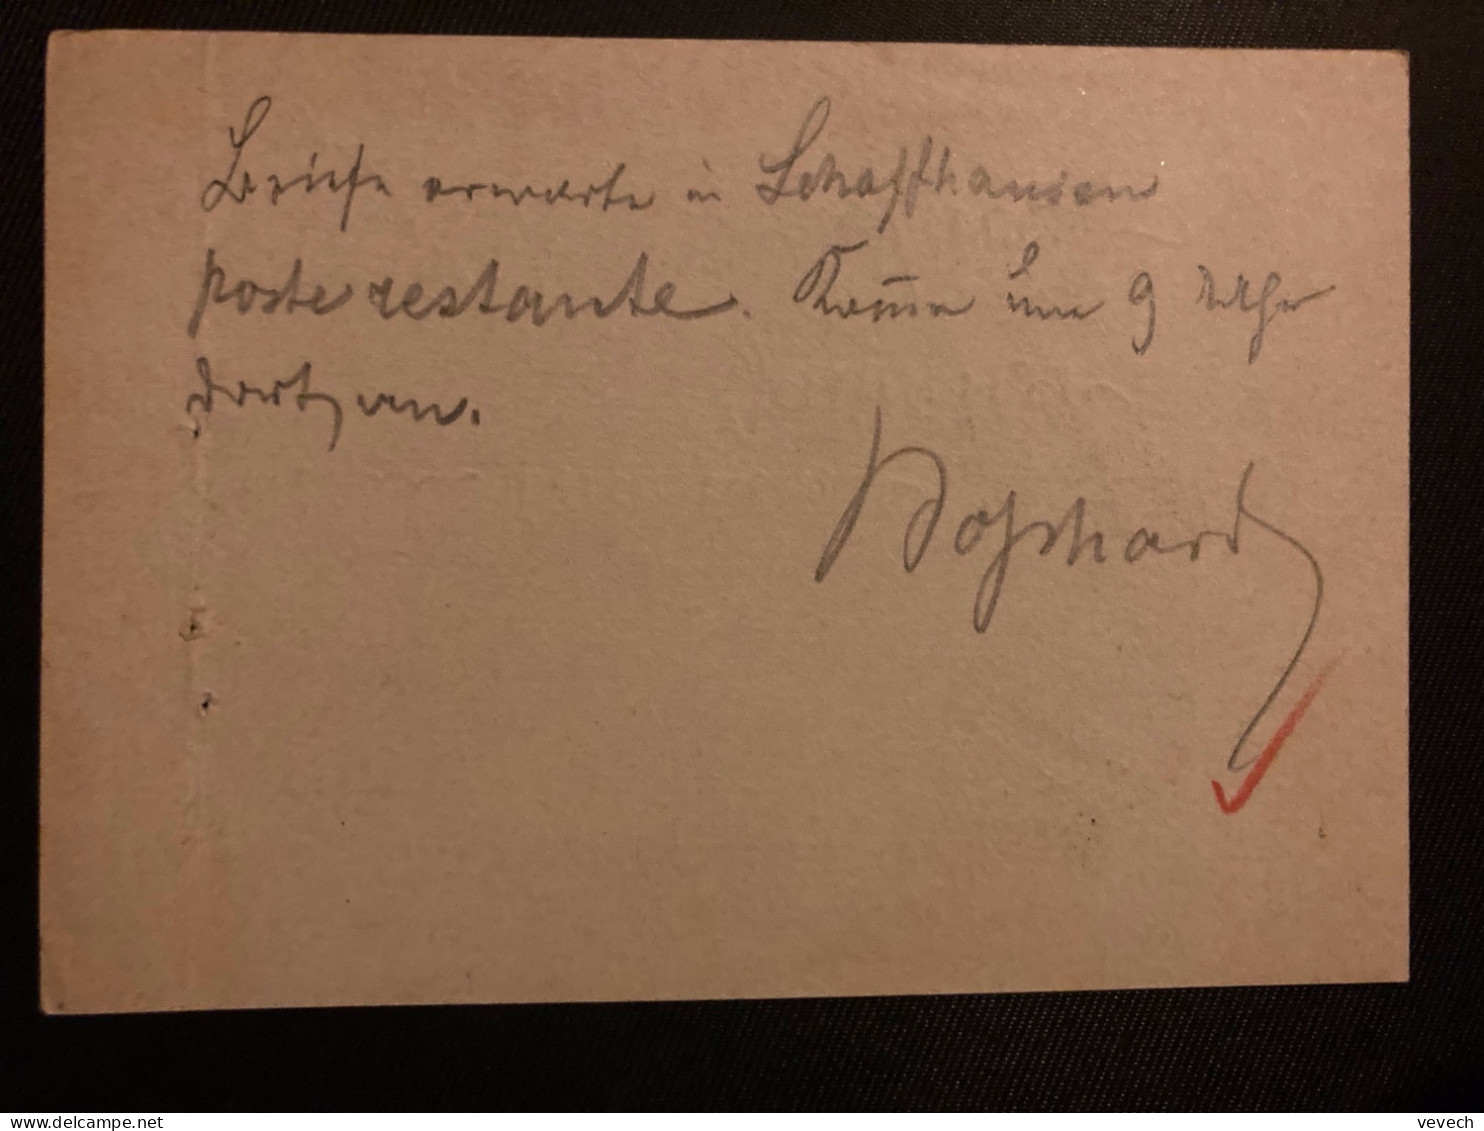 Briefe erwarte in Schaffhausen
poste restante. Komme um 9 Uhr
dort an.
Boßhard
vevech